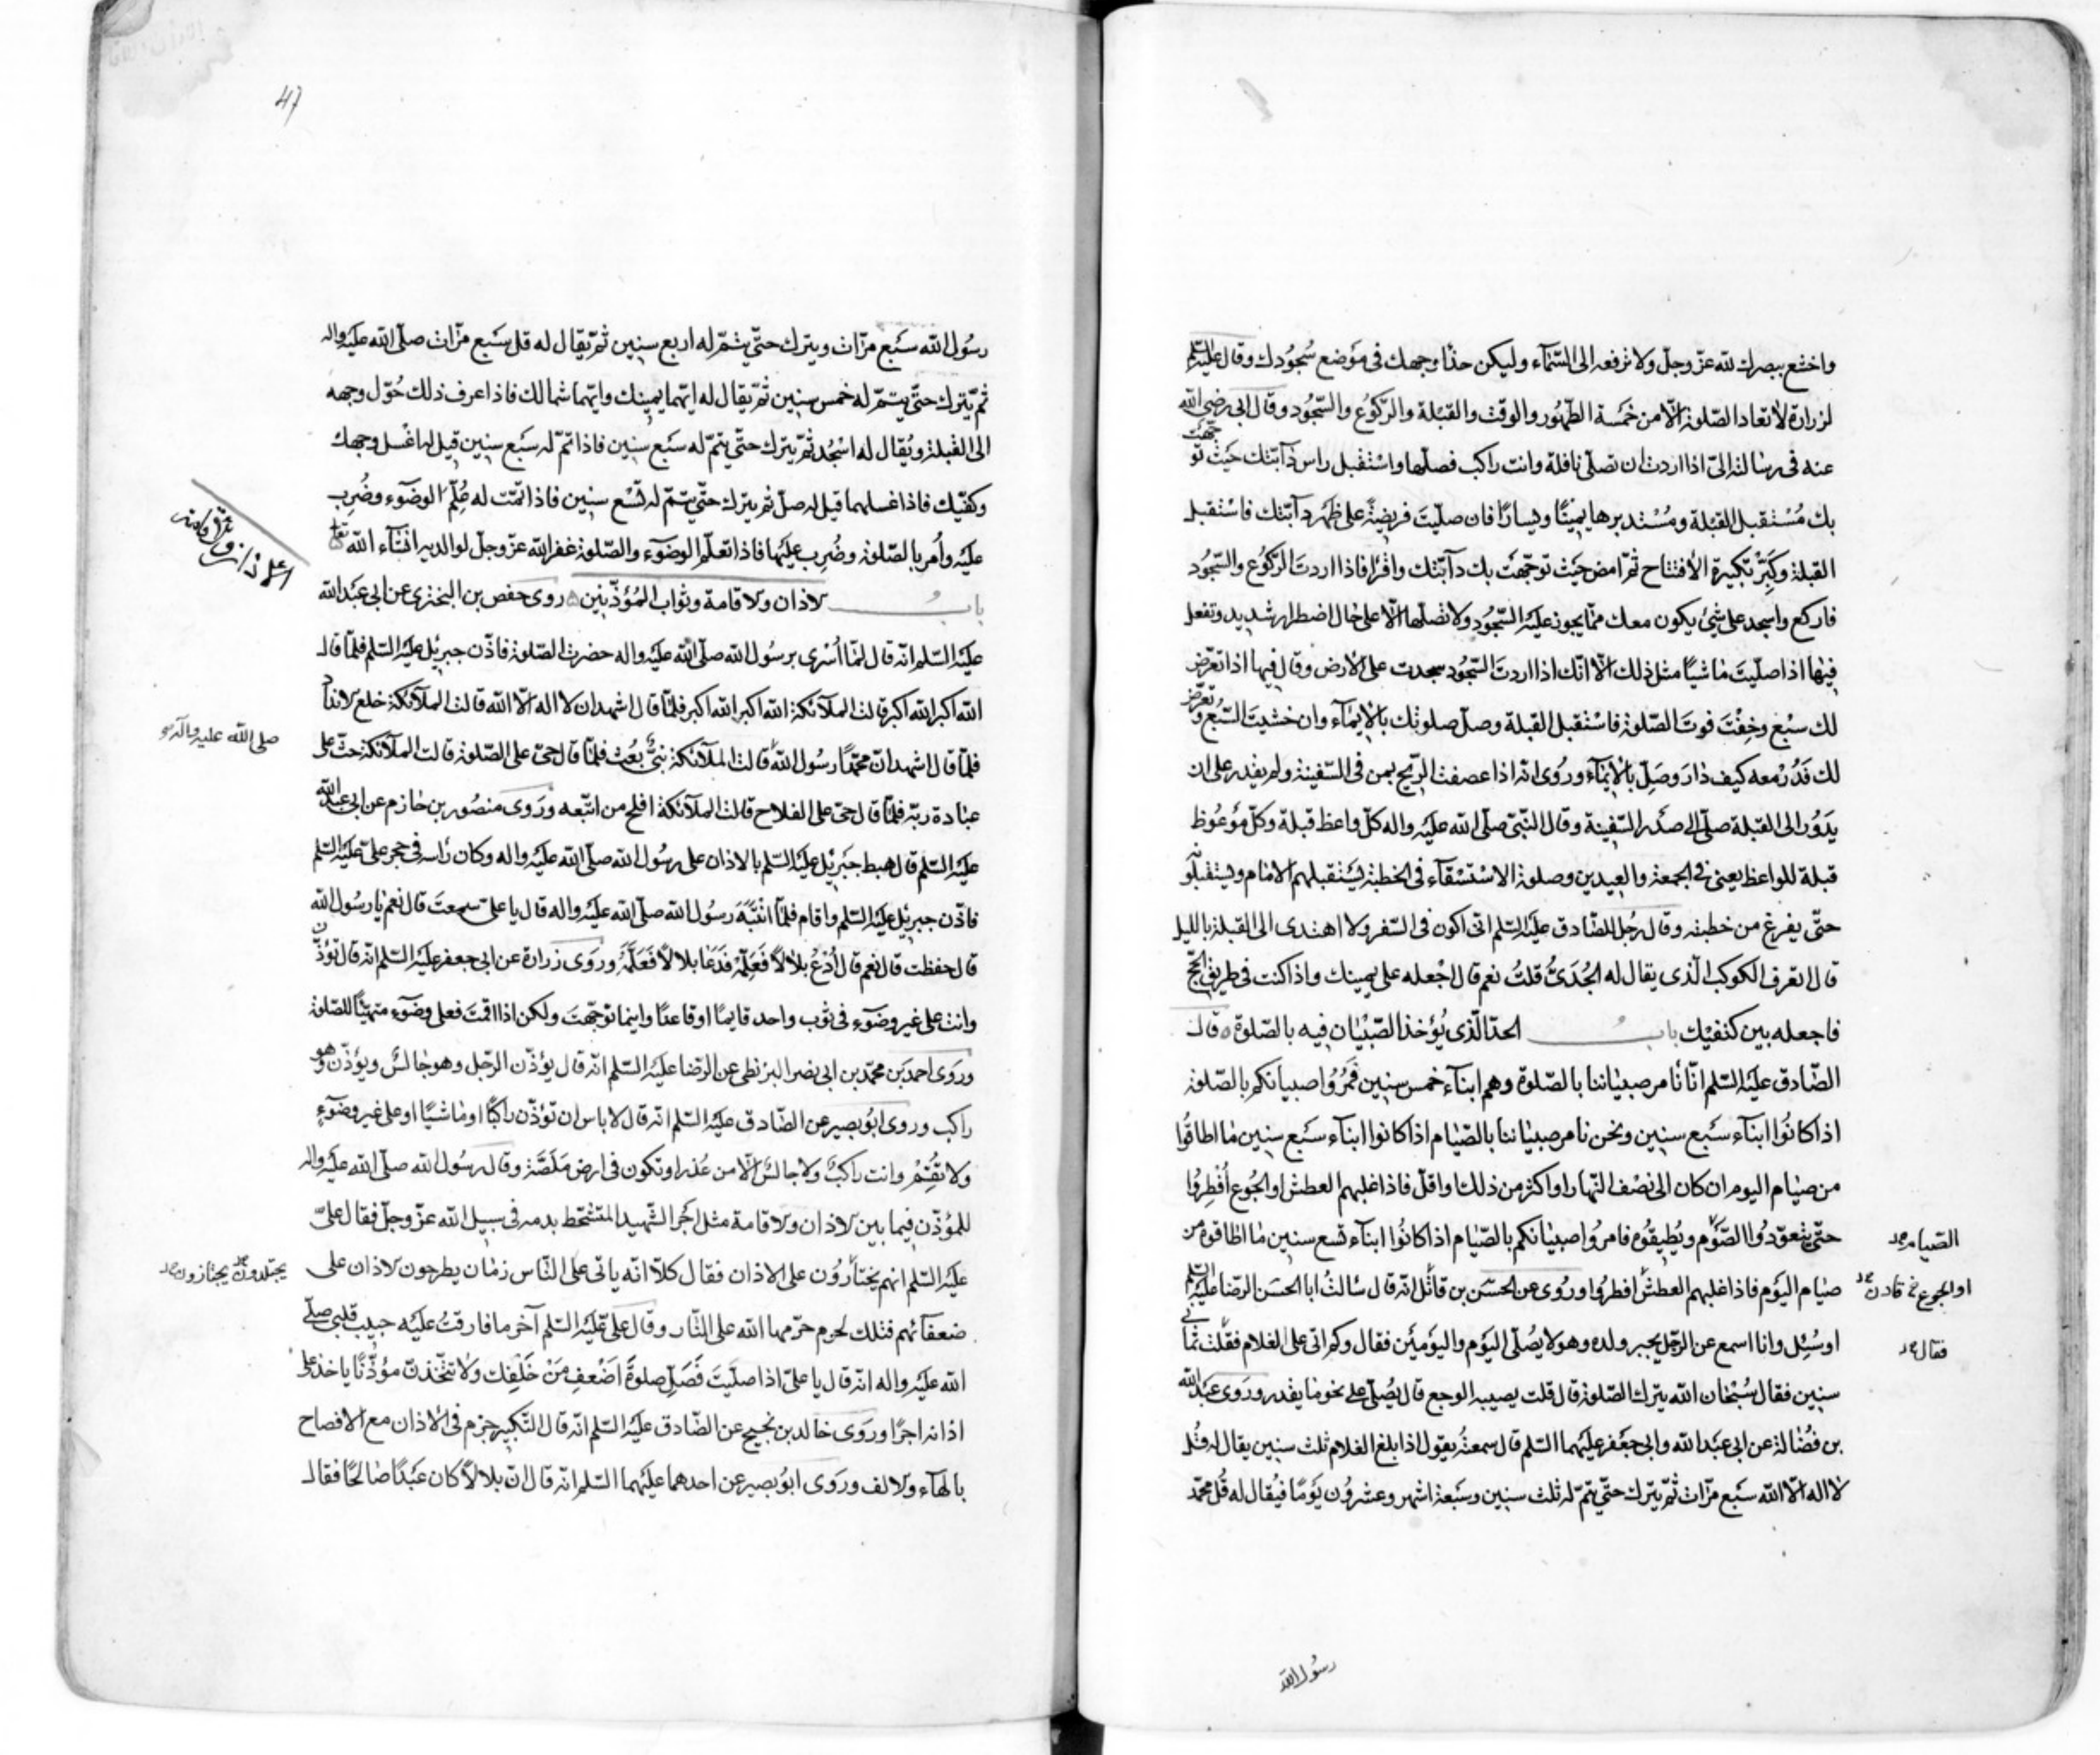 واخشع ببصرك لله عزّ وجلّ ولا ترفعه الى السّمآء وليكن حذاء وجهك فى موضع سُجُودك وقال عليه السّلم
لزرارة لا تعاد الصّلوة الّا من خمسة الطّهُور والوقت والقبلة والرّكوُع والسّجُود وقال ابى رضى الله
عنه فى رسالته الىّ اذا اردت ان تصلّى نافلة وانت راكب فصلّها واسْتقبل راس دآبّتك حيَث توجّهَت
بك مُسْتقبل القبلة ومُسْتدبرها يميناً ويساراً فان صلّيتَ فريضةً على ظَهر دآبّتك فاسْتقبل
القبلة وكَبِّرْ تكبيرة الافتتاح ثمّ امض حيَث توجّهَت بك دآبّتك واقرا فاذا اردتَ الرّكوُع والسّجُود
فاركع واسجد على شئ يكون معك ممّا يجوز عليَه السّجُود ولا تصلّها الّا على حال اضطرار شديد وتفعل
فيها اذا صلّيتَ ماشياً مثل ذلك الّا انّك اذا اردتَ السّجُود سجدت على الارض وقال فيها اذا تعرّض
لك سبُع وخِفْتَ فوتَ الصّلوة فاسْتقبل القبلة وصلّ صلوتك بالايمآء وان خشيتَ السّبُع وتعرّض
لك فَدُرْ معه كيف دارَ وصَلِّ بالايمآء ورُوى انه اذا عصفت الرّيح بمن فى السّفينة ولم يقدر على ان
يدوُر الى القبلة صلّى الى صدْر السّفينة وقال النّبىّ صلّى الله عليَه واله كلّ واعظ قبلة وكلّ موْعُوظ
قبلة للواعظ يعنى فى الجمعة والعيدين وصلوة الاسْتسْقآء فى الخطبة يسَتقبلهم الامام ويسَتقبلونه
حتّى يفرغ من خطبته وقال رجُل للصّادق عليَه السّلم انى اكون فى السّفر ولا اهتدى الى القبلة بالليل
قال اتعرف الكوكب الّذى يقال له الجُدَىُّ قلتُ نعم قال اجْعله على يمينك واذا كنت فى طريق الحجّ
فاجعله بين كتفيْك بابُ الحدّ الّذى يُؤخذ الصّبْيان فيه بالصّلوة ٥ قال
الصّادق عليَه السّلم انّا نأمر صبياننا بالصّلوة وهم ابناء خمس سنين فمُرُوا صبيانكم بالصّلوة
اذا كانُوا ابنآء سبَع سنين ونحن نامر صبياننا بالصّيام اذا كانوا ابنآء سبَع سنين ما اطاقُوا
من صيام اليوم ان كان الى نصْف النّهار او اكثر من ذلك واقلّ فاذا غلبهم العطش او الجُوع أفطِرُوا
حتّى يتعوّدوُا الصّوْم ويُطيقُوه فامرُوا صبيانكم بالصّيام اذا كانُوا ابنآء تسع سنين ما اطاقوه من
الصّيام
صيام اليوَم فاذا غلبهم العطشُ افطروُا ورُوى عن الحسَن بن قائل انّه قال سالتُ ابا الحسَن الرّضا عليَه السّلم
او الجوع خ قارن
اوسُئِل وانا اسمع عن الرّجل يجبر ولده وهو لا يُصلّى اليَوم واليوَمينَ فقال وكم اتى على الغلام فقلت ثمانى
فقال
سنين فقال سُبْحان الله يترك الصّلوة قال قلت يصيبه الوجع قال يُصلّى على نحو ما يقدر ورَوى عبَد الله
بن فُضالة عن ابى عبَد الله وابى جعَفر عليَهما السّلم قال سمعتُه يقول اذا بلغ الغلام ثلث سنين يقال له قُل
لا اله الّا الله سبَع مرّات ثمّ يترك حتّى يتمّ له ثلث سنين وسَبعة اشهر وعشروُن يوَمًا فيُقال له قُل محمّد
رسُول الله
47
رسُول الله سبَع مرّات ويترك حتّى يتمّ له اربع سنين ثمّ يقال له قل سبَع مرّات صلّى الله عليَه واله
ثمّ يّترك حتّى يتمّ له خمس سنين ثمّ يقال له ايّهما يمينك وايّهما شمالك فاذا عرف ذلك حُوّل وجهه
الى القبلة ويُقال له اسْجُد ثمّ يترك حتّى يتمّ له سبَع سنين فاذا تمّ له سبَع سنين قيل له اغسل وجهك
وكفّيك فاذا غسلهما قيل له صلّ ثم يترك حتّى يتمّ له تسْع سنين فاذا تمّت له عُلّم الوضوَء وضُرِب
عليَه وأمر بالصّلوة وضُرِب عليَها فاذا تعلّم الوضوَء والصّلوة غفر الله عزّ وجلّ لوالديه انشآء الله تعا
بابُ الاذان والاقامة وثواب المُؤذّنين ٥ روى حفص بن البخترى عن ابى عبَد الله
عليَه السّلم انّه قال لمّا أسْرى برسُول الله صلّى الله عليَه واله حضرت الصّلوة فاذّن جبرئيل عليَه السّلم فلمّا قال
الله اكبر الله اكبر قالت الملآئكة الله اكبر الله اكبر فلمّا قال اشهد ان لا اله الّا الله قالت الملآئكة خلع الانداد
فلمّا قال اشهد انّ محمّدًا رسُول الله قالت الملآئكة نبىٌّ بُعث فلمّا قال حىّ على الصّلوة قالت الملآئكة حثّ على
صلى الله عليه وآله
عبادة ربّه فلمّا قال حىّ على الفلاح قالت الملآئكة افلح من اتّبعه ورَوى منصُور بن حازم عن ابى عبَد الله
عليَه السّلم قال هبط جبَرئيل عليَه السّلم بالاذان على رسُول الله صلّى الله عليَه واله وكان رأسه فى حجر علىّ عليَه السّلم
فاذّن جبرئيل عليَه السّلم واقام فلمّا انتبَهَ رسُول الله صلّى الله عليَه واله قال يا علىّ سمعتَ قال نعم يا رسُول الله
قال حفظت قال نعم قال أدْعُ بلالًا فَعلّمهْ فدَعَا بلالًا فَعلّمَهُ ورَوى زرارة عن ابى جعفر عليَه السّلم انه قال تؤذّن
وانت على غير وضوَء فى ثوب واحد قايمًا او قاعدًا واينما توجّهتَ ولكن اذا اقمتَ فعلى وضوَء متهيّئًا للصّلوة
وروَى احمد بن محمّد بن ابى نصر البزنطى عن الرّضا عليَه السّلم انّه قال يؤذّن الرّجل وهو جالسٌ ويؤذّن وهو
راكب وروى ابوُ بصير عن الصّادق عليَه السّلم انّه قال لا باس ان تؤذّن راكبًا او ماشيًا او على غير وضوَءٍ
ولا تقِمْ وانت راكبٌ ولا جالسٌ الّا من عُذر او تكون فى ارض مَلصَّة وقال رسُول الله صلّى الله عليَه واله
للمؤذّن فيما بين الاذان والاقامة مثل اجُر الشّهيد المتشحّط بدمه فى سبيل الله عزّ وجلّ فقال علىّ
عليَه السّلم انهم يختأرُوُن على الاذان فقال كلّا انّه ياتى على النّاس زمان يطرحون الاذان على
يجتلدون يجتازون
ضعفآئهم فتلك لحوم حرّمها الله على النّار وقال علىّ عليَه السّلم آخر ما فارقتُ عليَه حبيب قلبى صلّى
الله عليَه واله انّه قال يا علىّ اذا صلّيتَ فَصَلّ صلوَة اضْعفِ مَنْ خَلْفِك ولا تتّخذنّ مؤذّنًا ياخذ على
اذانه اجرًا وروَى خالد بن نجيح عن الصّادق عليَه السّلم انّه قال التّكبير جزم فى الاذان مع الافصاح
بالهآء والالف وروَى ابوُ بصير عن احدهما عليَهما السّلم انّه قال انّ بلالًا كان عبَدًا صالحًا فقال